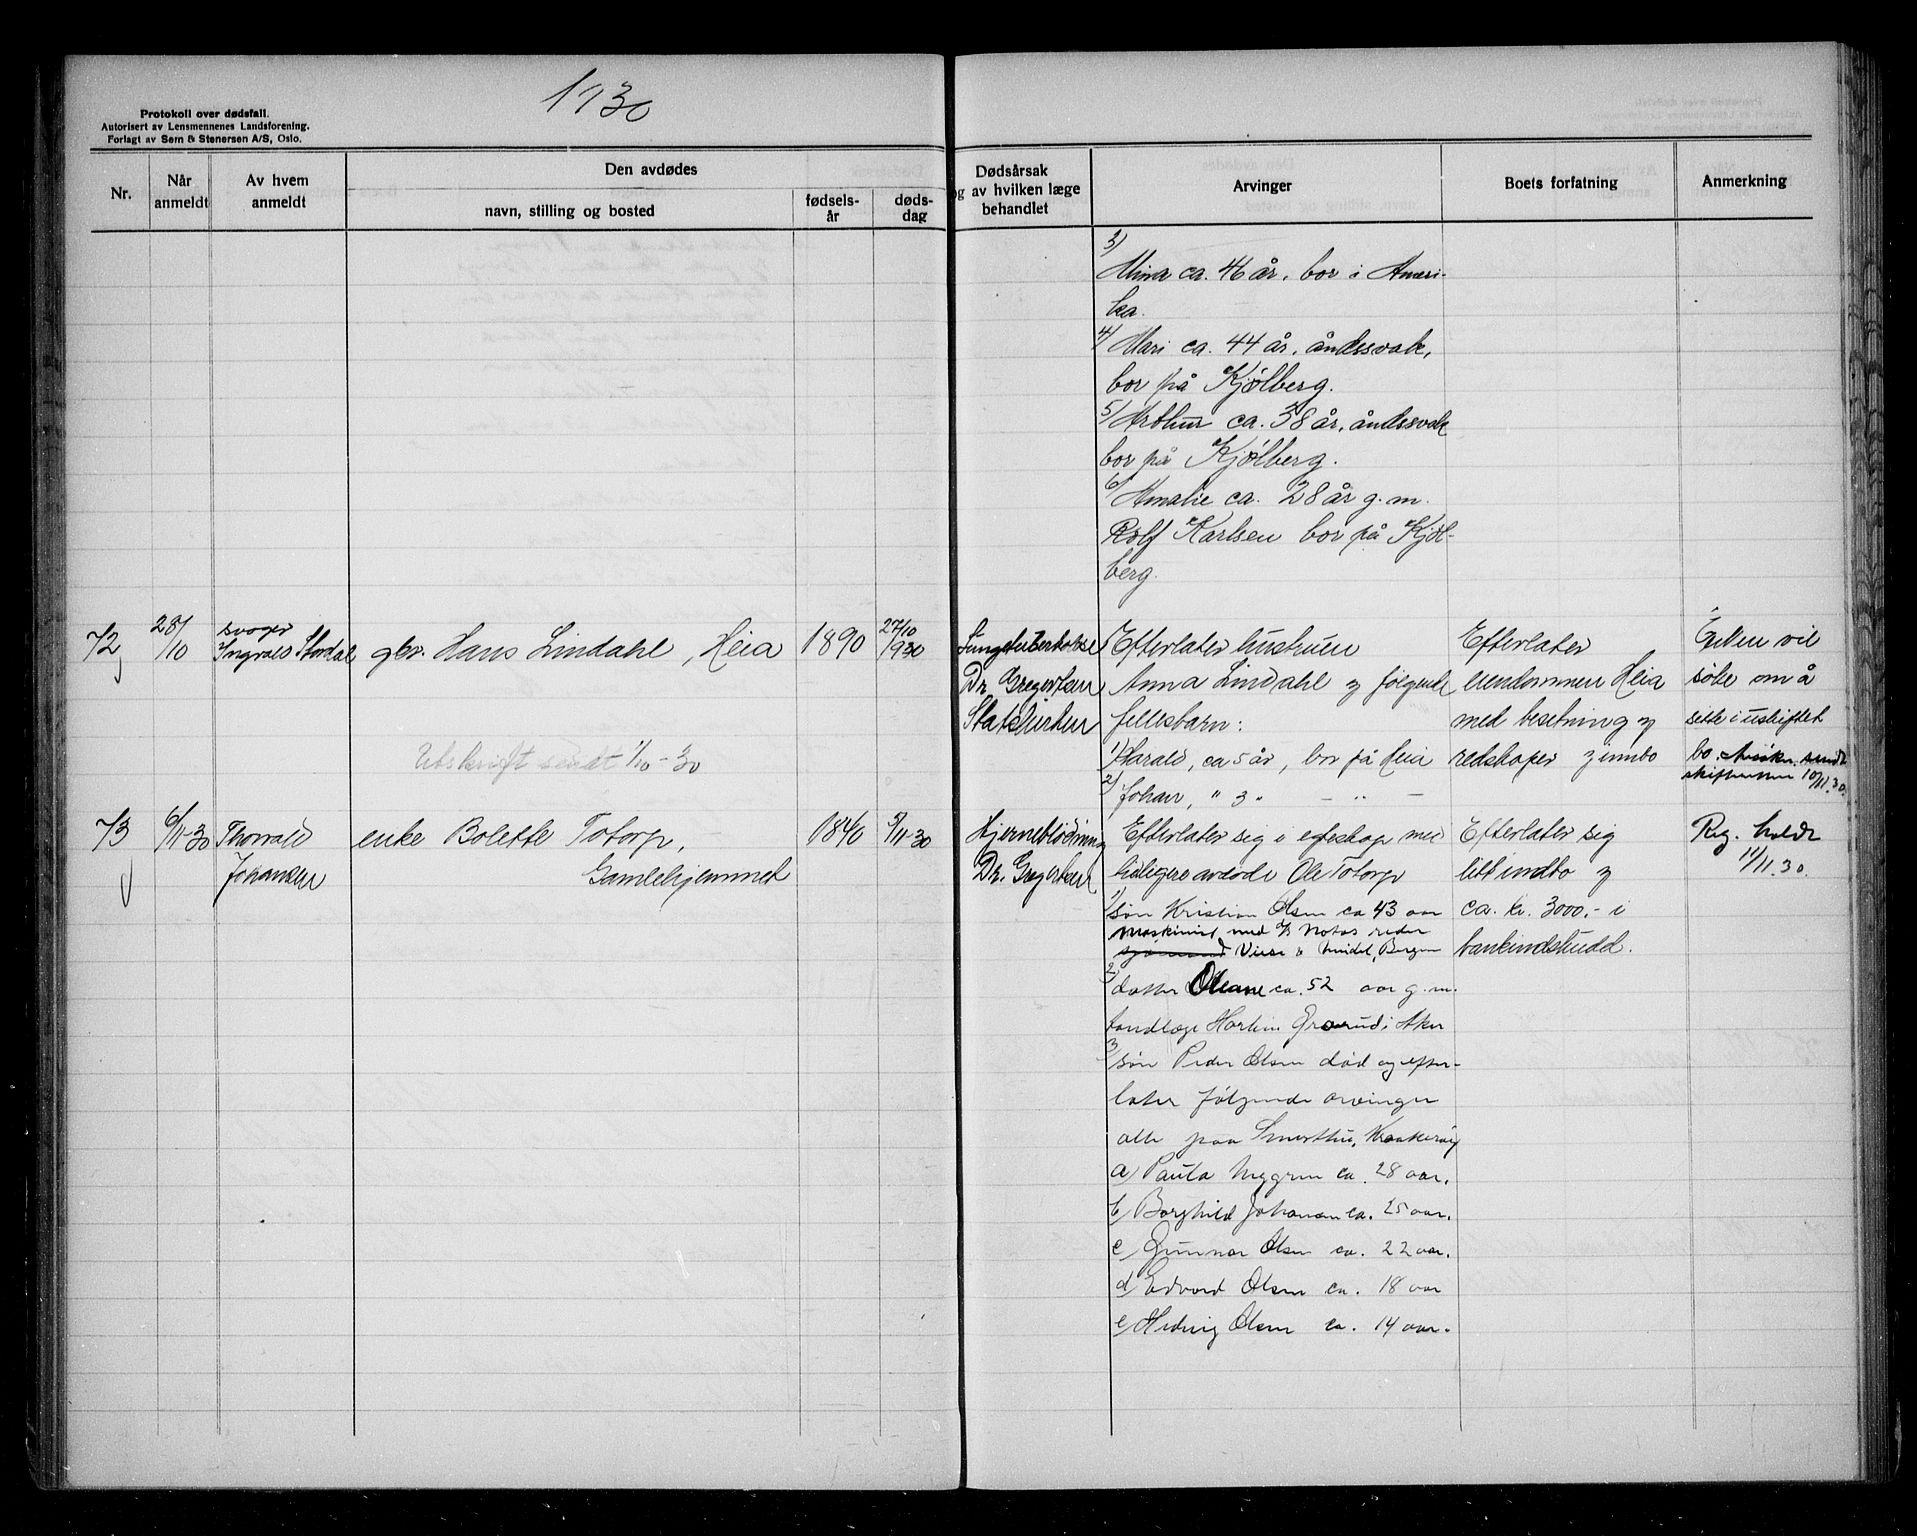 1930
Protokoll over dødsfall.
Autorisert av Lensmennenes Landsforening.
Forlagt av Sem & Stenersen A/S, Oslo.
Nr.
Når anmeldt
Av hvem anmeldt
Den avdødes
navn, stilling og bosted
fødsels-år
døds-dag
Dødsårsak
og av hvilken læge
behandlet
Arvinger
Boets forfatning
Anmerkning
3)
Mina ca. 46 år, bor i Ameri-
ka.
4) Mari ca. 44 år, åndssvak,
bor på Kjølberg.
5) Arthur ca. 38 år, åndssvak
bor på Kjølberg.
6) Amalie ca. 28 år g. m.
Rolf Karlsen bor på Kjøl-
berg.
72
28/10
svoger
Ingvald Stordal
gbr. Hans Lindahl, Heia
1890
27/10 1930
Lungetuberkulose
Dr. Gregertsen
Efterlater hustruen
Anna Lindahl og følgende
fellesbarn:
1) Harald, ca 5 år, bor på Heia
2) Johan, " 3 " - " -
Efterlater
eiendommen Heia
med besetning og
redskaper og innbo
Enken vil
søke om å
sitte i uskiftet
bo.
10/11.30.
Utskrift sendt 1/10-30
73
6/11-30
Thorvald
Johansen
enke Bolette Totorp,
Gamlehjemmet
1840
5/11-30
Hjerneblødning
Dr. Gregertsen
Efterlater sig i egteskap med
tidligere avdøde Ole Totorp
1) søn Kristian Olsen ca 43 aar
maskinist med
Bergen
2) datter Oleane ca. 52 aar g. m.
tandlæge Martin Graarud i Aker
3) søn Peder Olsen død og efter-
later følgende arvinger
alle paa
a) Paula Nygren ca. 28 aar.
b) Borghild Johansen ca. 25 aar.
c) Gunnar Olsen ca. 22 aar.
d) Edvard Olsen ca. 18 aar
e) Hedvig Olsen ca. 14 aar.
Efterlater sig
litt indbo og
ca. kr. 3000,- i
bankindskudd.
Reg. holdt
11/11.30.